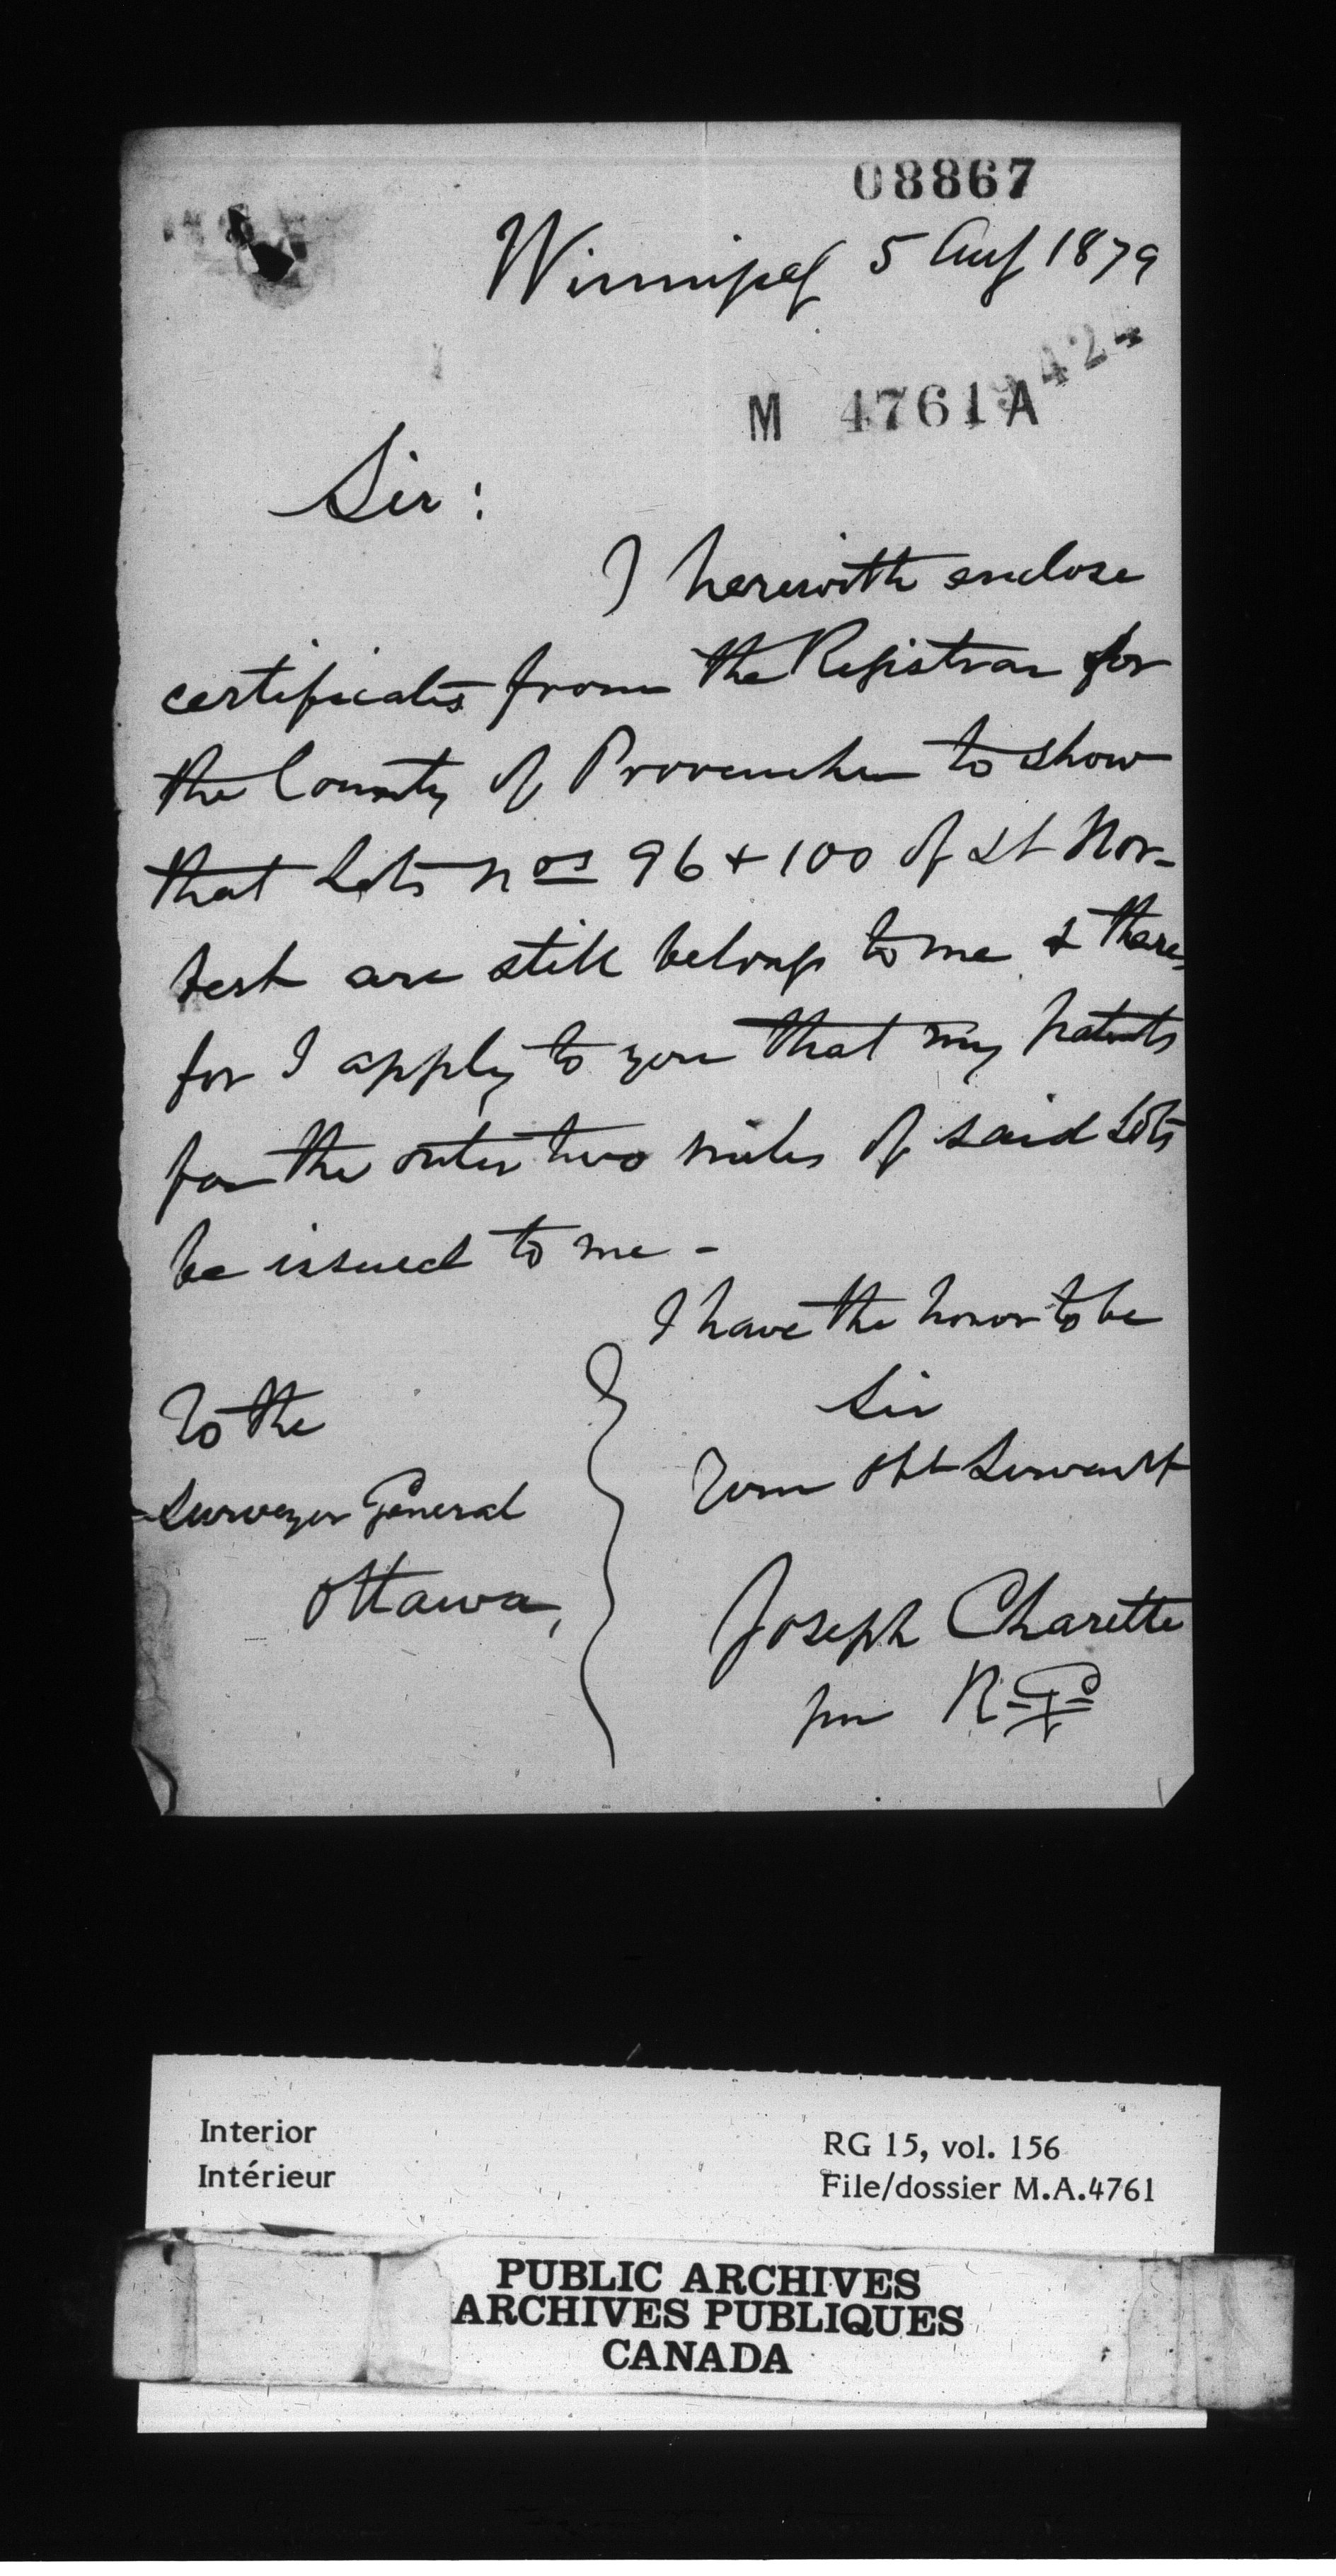 08867
Winnipeg 5 Aug 1879
M 4761 A
424
Sir :
I herewith enclose
certificates from the Registrar for
the County of Provencher to show
that Lots nos 96 + 100 of St Nor-
bert are still belong to me & there
for I apply to you that my patents
for the outer two miles of said Lots
be issued to me -
I have the honor to be
Sir
Your Obt Servant
Joseph Charette
per
To the
Surveyor General
Ottawa,
Interior
Intérieur
RG 15, vol. 156
File/dossier M.A.4761
PUBLIC ARCHIVES
ARCHIVES PUBLIQUES
CANADA